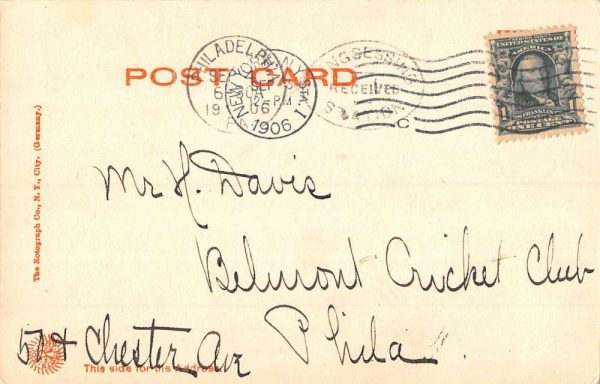 POST CARD
PHILADELPHIA
NEW YORK, N.Y. STA. I
SEP
PM
1906
19 06
KINGSESSING
RECEIVED
STATION
C
UNITED STATES OF AMERICA
FRANKLIN
POSTAGE
ONE CENT
1
The Rotograph Co., N. Y. City. (Germany.)
Mr H. Davis
Belmont Cricket Club
57 & Chester Ave Phila
This side for the Address.